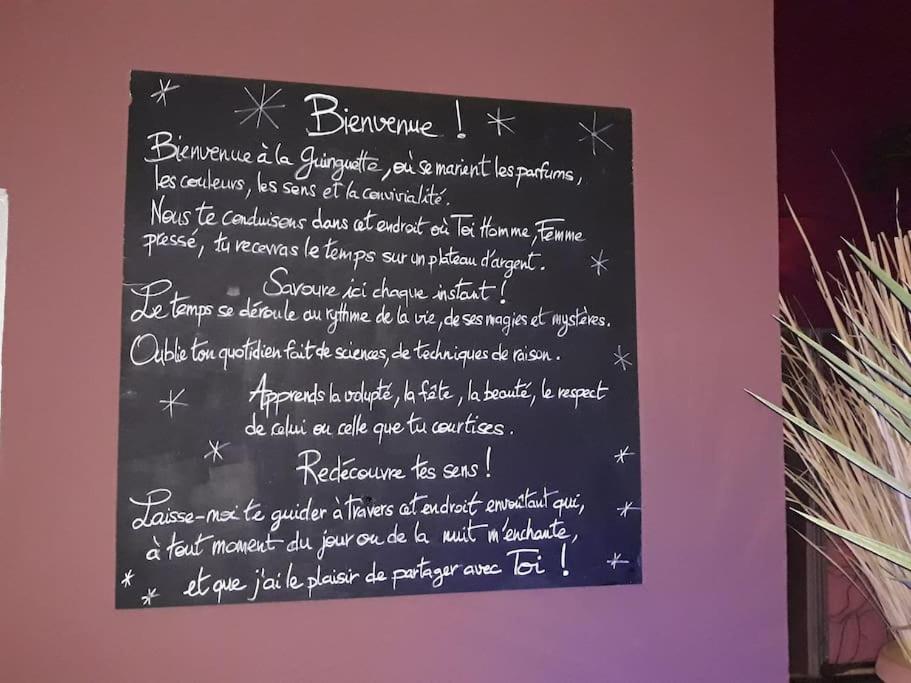 Bienvenue !
Bienvenue à la Guinguette, où se marient les parfums,
les couleurs, les sens et la convivialité.
Nous te conduisons dans cet endroit où Toi Homme, Femme
pressé, tu recevras le temps sur un plateau d'argent.
Savoure ici chaque instant !
Le temps se déroule au rythme de la vie, de ses magies et mystères.
Oublie ton quotidien fait de sciences, de techniques de raison.
Apprends la volupté, la fête, la beauté, le respect
de celui ou celle que tu courtises.
Redécouvre tes sens !
Laisse-moi te guider à travers cet endroit envoûtant qui,
à tout moment du jour ou de la nuit m'enchante,
et que j'ai le plaisir de partager avec Toi !